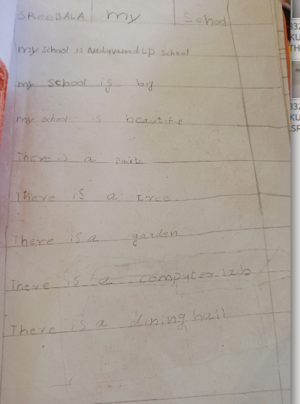 SREEBALA my School
my school is LP School
my school is big
my school is
There is a
There is a tree
There is a garden
There is a computer lab
There is a dining hall